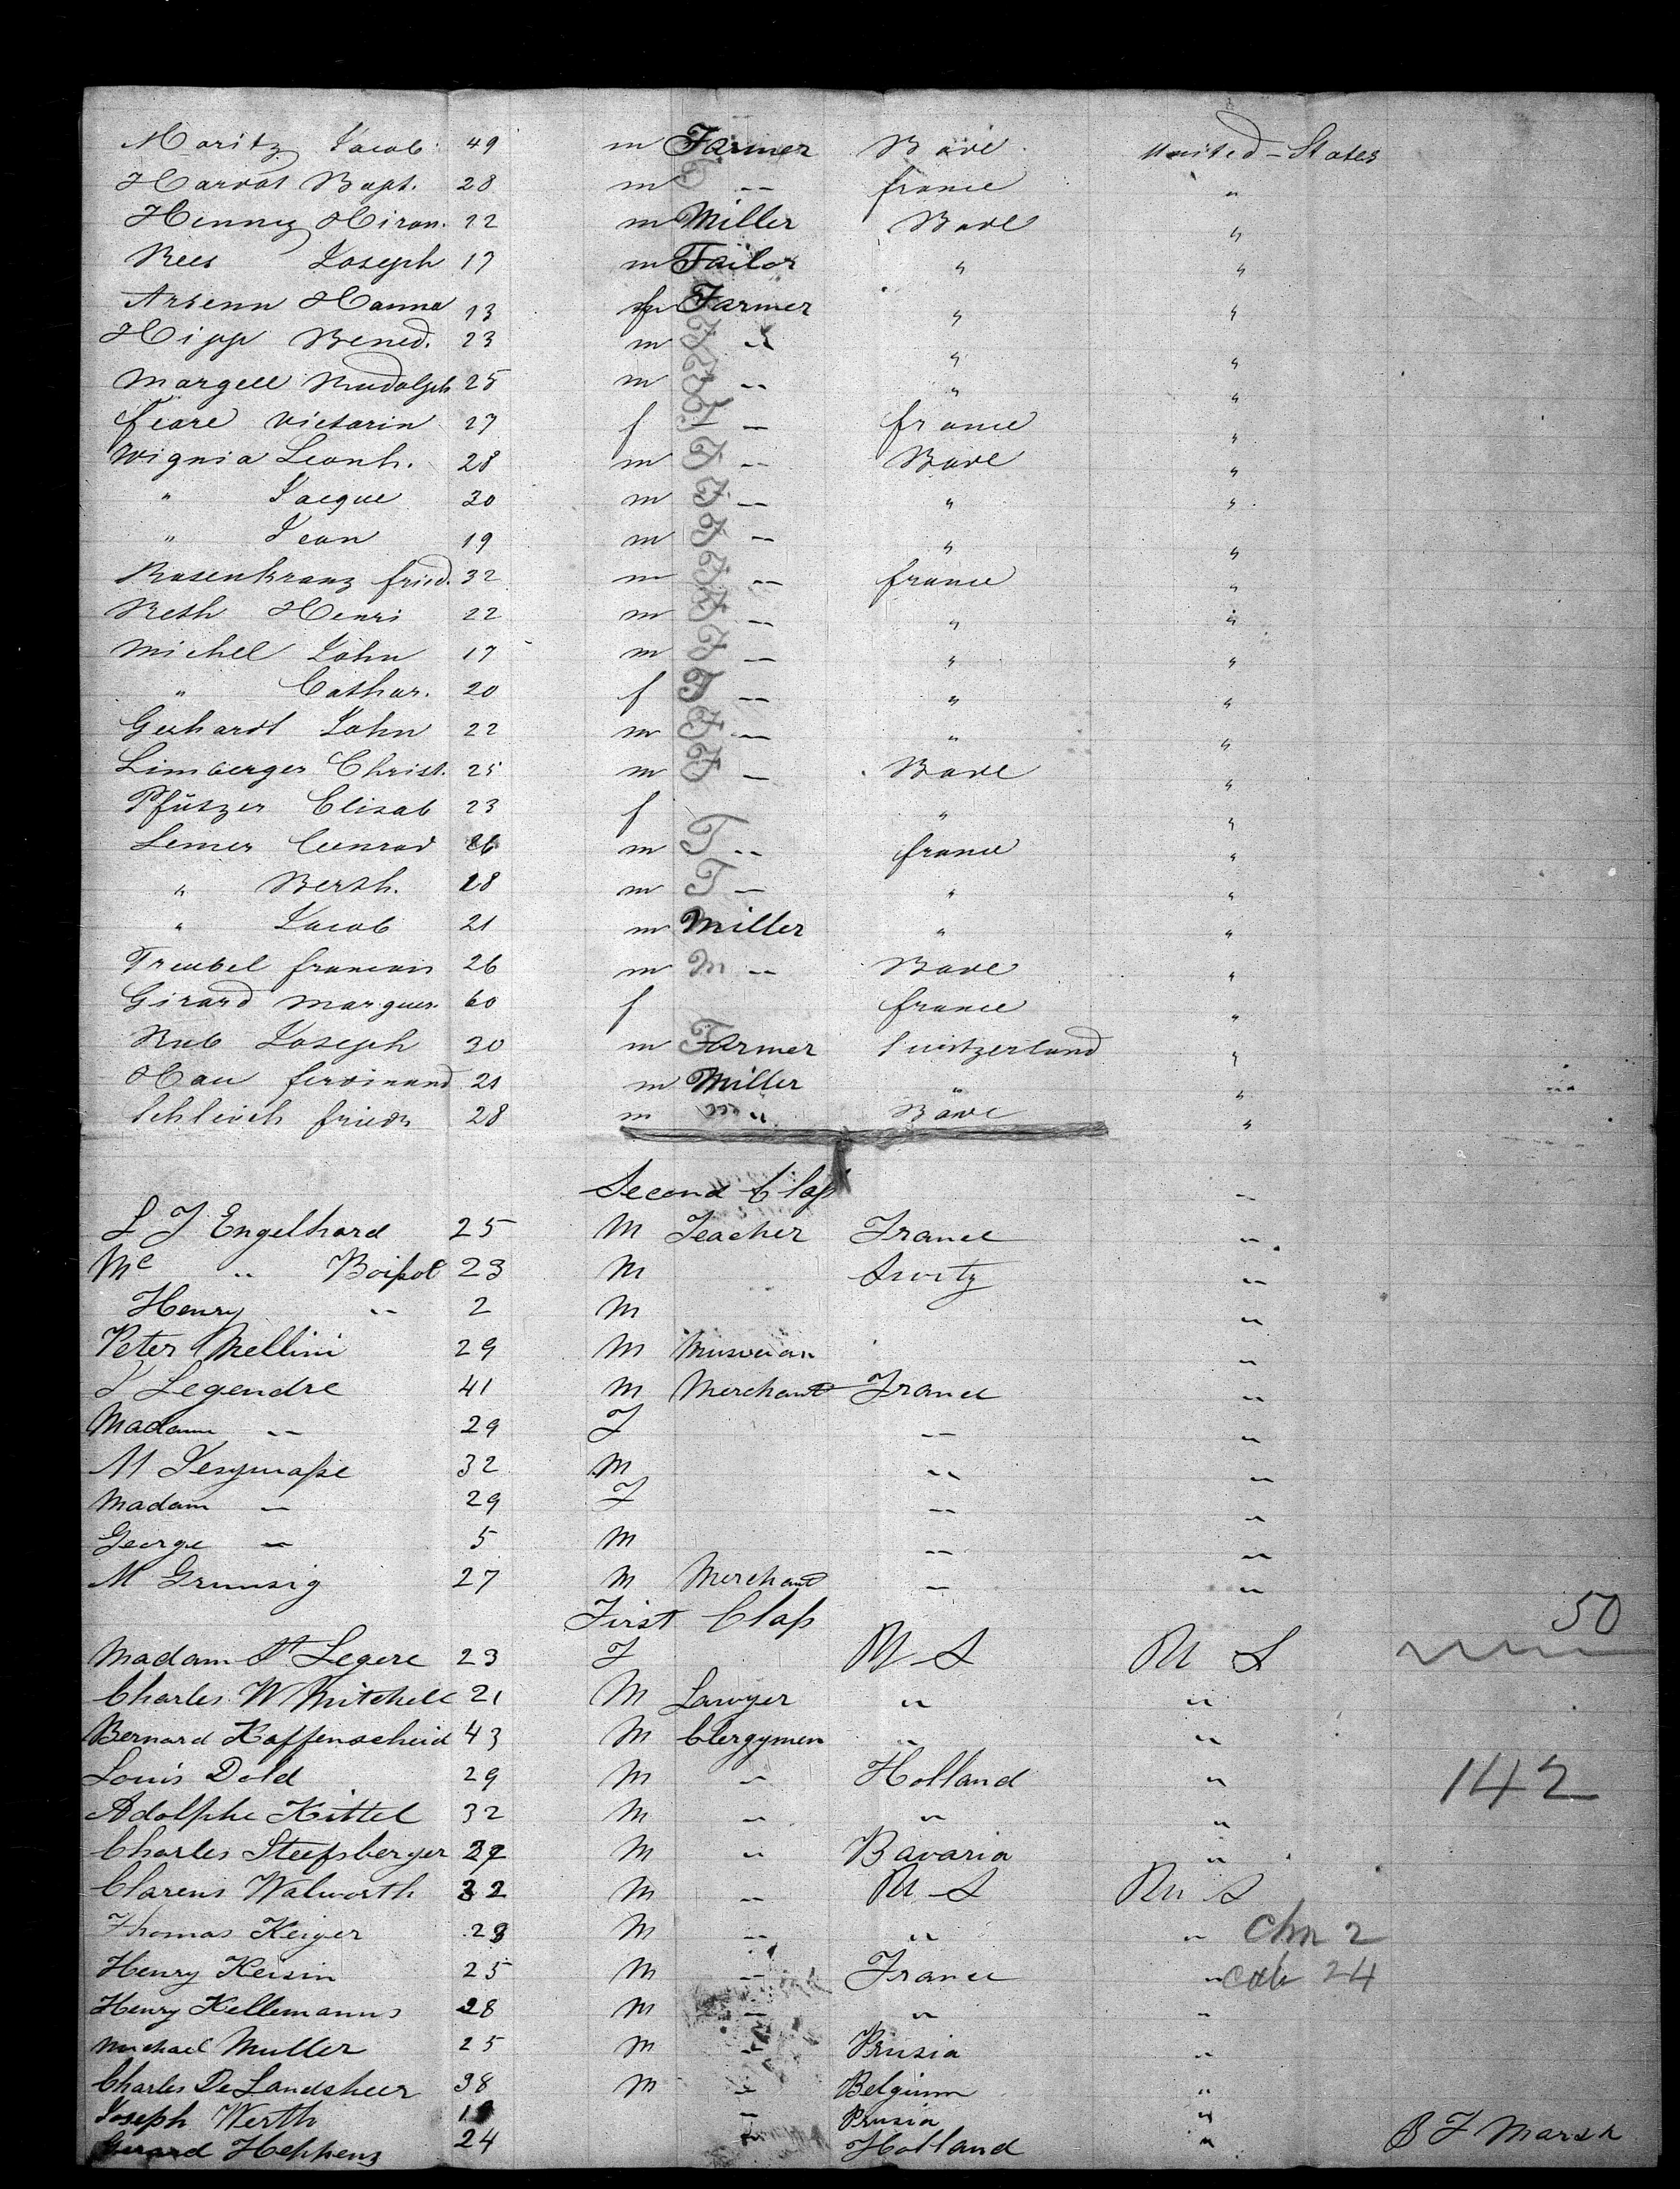 Moritz Jacob 49 m Farmer Bade United-States
Harvat Bapt. 28 m F — france "
Henny Hiron. 22 m Miller Bade "
Rees Joseph 17 m Tailor " "
Arsenn Hanna 13 f Farmer " "
Hipp Bened. 23 m F " " "
Margell Rudolph 25 m F — " "
Feare Victorin 27 f F — france "
Wignia Leonh. 28 m F — Bade "
" Jacque 30 m F — " "
" Jean 19 m F — " "
Rosenkranz fried. 32 m F — france "
Reth Henri 22 m F — " "
Michel John 17 m F — " "
" Cathar. 20 f F — " "
Gerhardt John 22 m F — " "
Limberger Christ. 25 m F — Bade "
Pfützer Elisab 23 f " "
Lemer Conrad 26 m F — france "
" Berth. 28 m F — " "
" Jacob 21 m Miller " "
Treubel francois 26 m M — Bade "
Girard Marguer. 60 f france "
Rub Joseph 30 m Farmer Switzerland "
Hau ferdinand 21 m Miller " "
Schleich friedr 28 m M " Bade "
Second Class "
L J Engelhard 25 M Teacher France "
Me " Boissot 23 M Switz "
Henry " 2 M "
Peter Mellini 29 M Musician "
J Legendre 41 M Merchant France "
Madam " 29 F " "
M 32 M " "
Madam " 29 F " "
George " 5 M " "
M Grunsig 27 M Merchant " "
First Class 50
Madam St Legere 23 F U S U S
Charles W Mitchell 21 M Lawyer " "
Bernard Haffenscheid 43 M Clergymen " "
Louis Dold 29 M " Holland " 142
Adolphe Kittel 32 M " " "
Charles Steissberger 29 M " Bavaria "
Clarens Walworth 32 M " U S U S
Thomas Keiger 29 M " " " chn 2
Henry Keisin 25 M " France " cab 24
Henry Kellemanns 28 M " " "
Michael Muller 25 M " Prusia "
Charles De Landsheer 38 M " Belgium "
Joseph Werth " Prusia "
Gerard Heppens 24 " Holland " B F Marsh